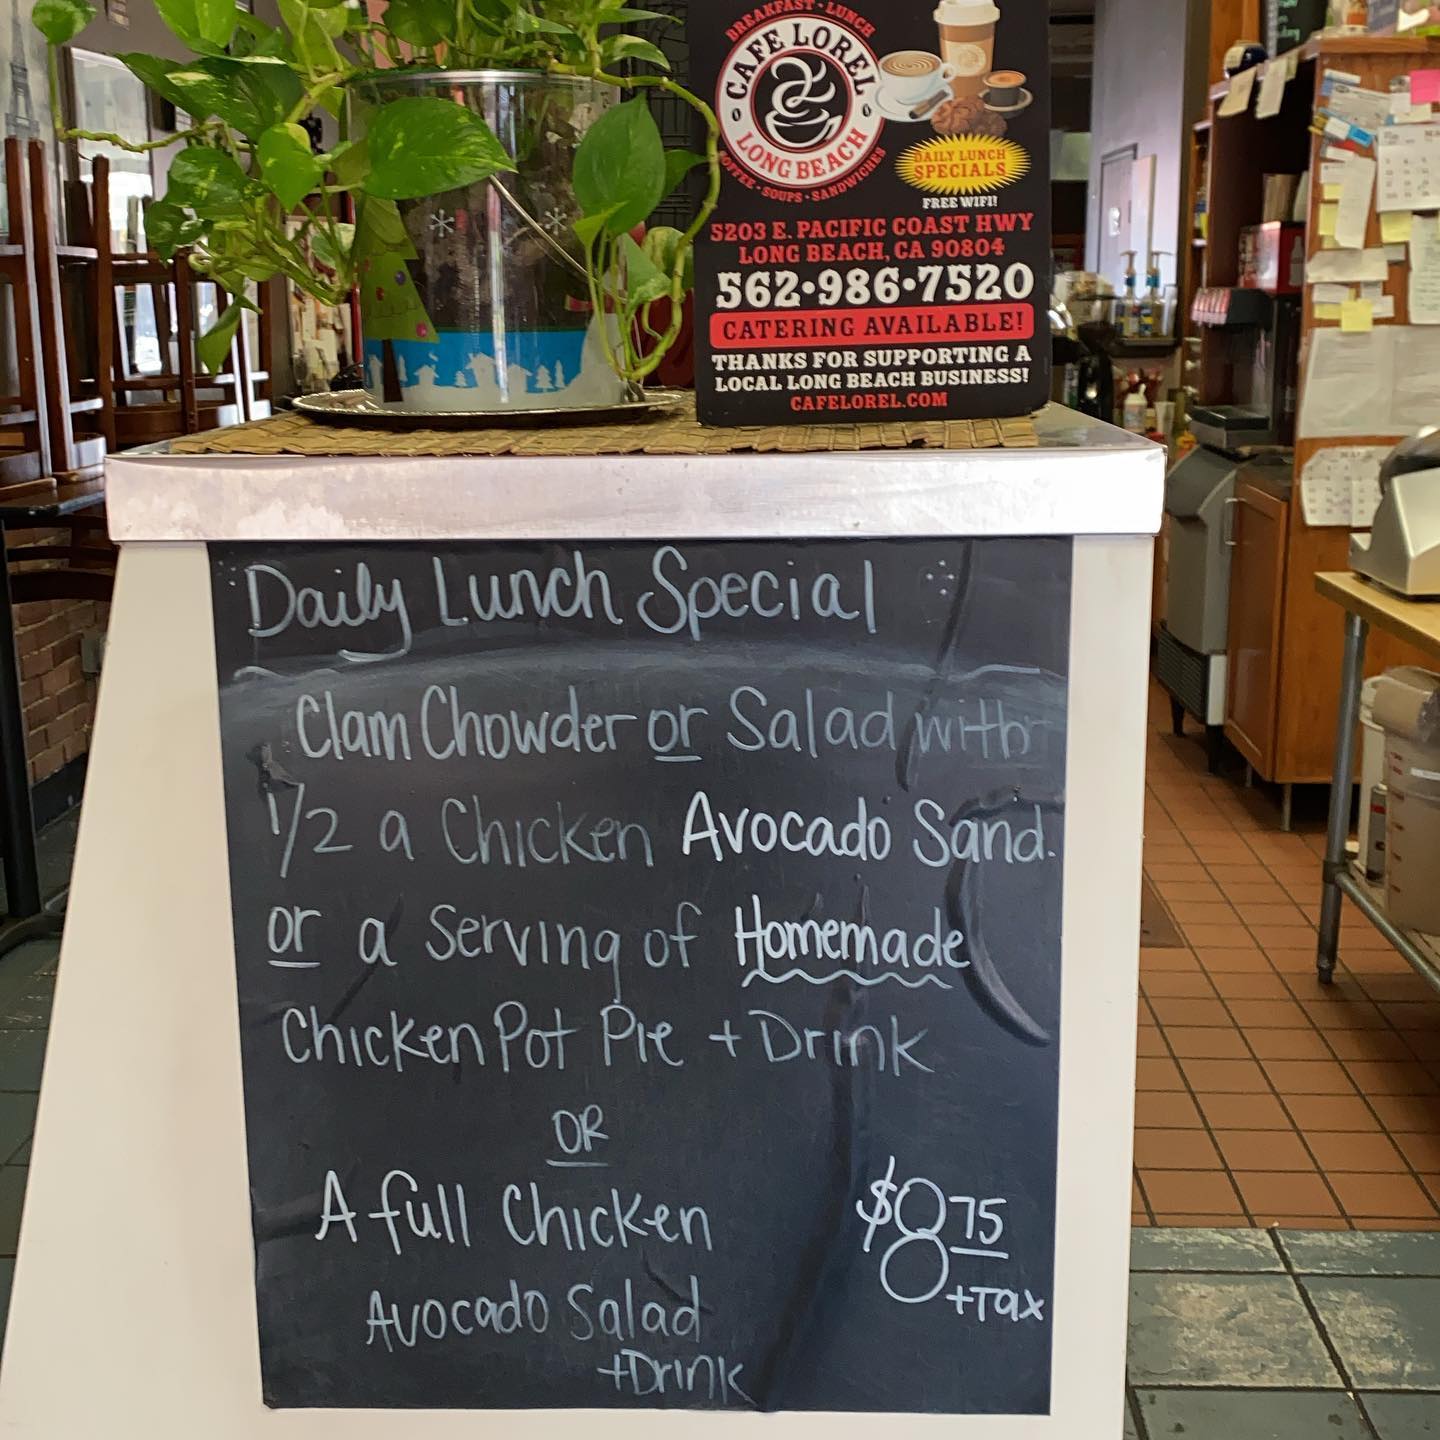 BREAKFAST • LUNCH
CAFE LOREL
LONG BEACH
COFFEE • SOUPS • SANDWICHES
DAILY LUNCH
SPECIALS
FREE WIFI!
5203 E. PACIFIC COAST HWY
LONG BEACH, CA 90804
562•986•7520
CATERING AVAILABLE!
THANKS FOR SUPPORTING A
LOCAL LONG BEACH BUSINESS!
CAFELOREL.COM
Daily Lunch Special
Clam Chowder or Salad with
1/2 a Chicken Avocado Sand.
or a serving of Homemade
Chicken Pot Pie + Drink
OR
A full Chicken
Avocado Salad
+Drink
$8 75
+Tax